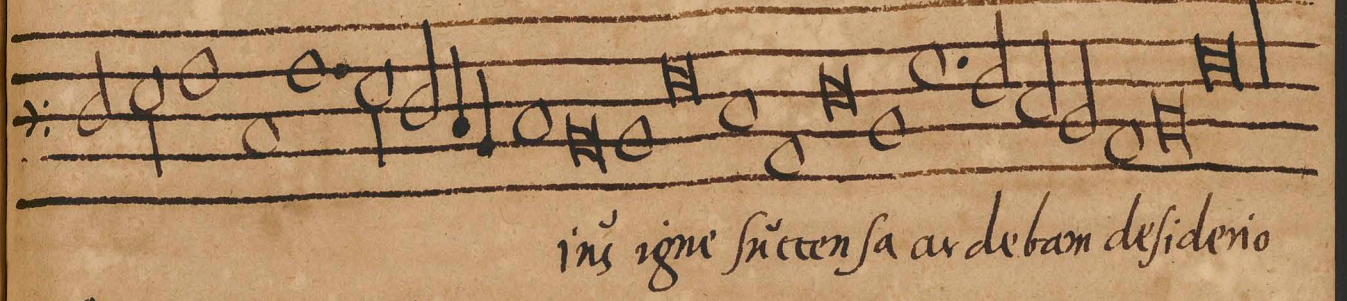 inũs igne sũccensa ardebam desiderio